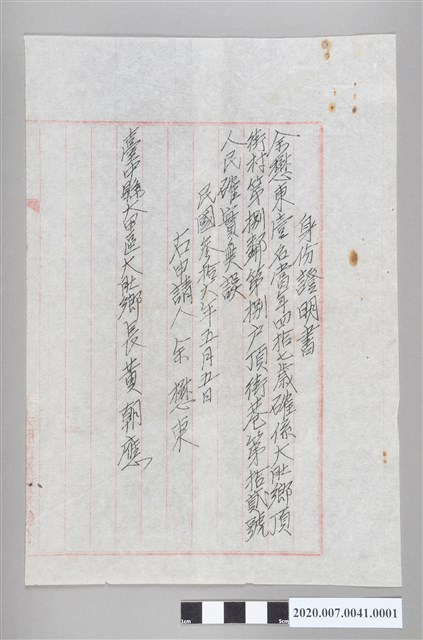 身份證明書
余懋東壹名當年四拾七歲確係大肚鄉頂
街村第捌鄰第捌戶頂街巷第拾貳號
人民確實無誤
民國參拾六年五月五日
右申請人余懋東
臺中縣大甲區大肚鄉長黃朝應
1cm
5cm
2020.007.0041.0001